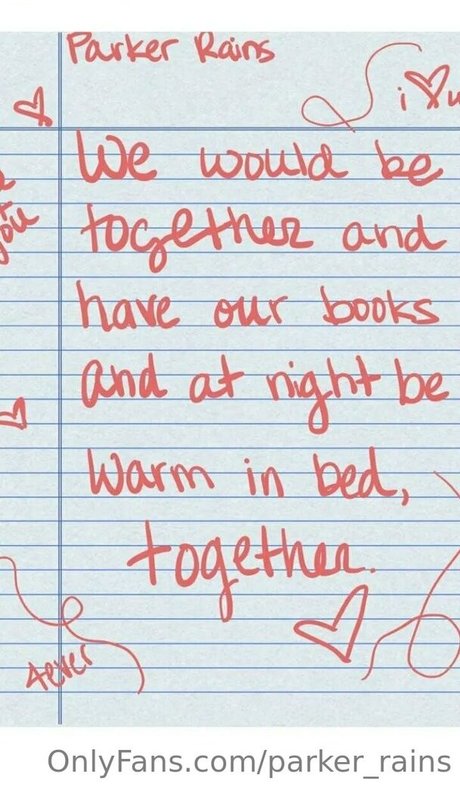 Parker Rains
i ♡ u
We would be
you
together and
have our books
and at night be
warm in bed,
together.
4ever
OnlyFans.com/parker_rains